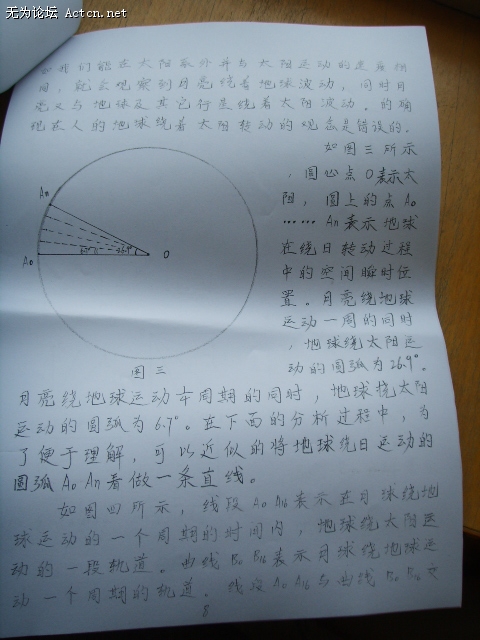 无为论坛 Actcn.net
如我们能在太阳系外并与太阳运动的速度相
同，就会观察到月亮绕着地球波动，同时月
亮又与地球及其它行星绕着太阳波动。的确
现在人的地球绕着太阳转动的观念是错误的。
如图三所示
，圆心点O表示太
阳，圆上的点A₀
……An表示地球
在绕日转动过程
中的空间瞬时位
置。月亮绕地球
运动一周的同时
，地球绕太阳运
动的圆弧为26.9°。
An
A₀
6.7°
26.9°
O
图三
月亮绕地球运动¼周期的同时，地球绕太阳
运动的圆弧为6.7°。在下面的分析过程中，为
了便于理解，可以近似的将地球绕日运动的
圆弧A₀An看做一条直线。
如图四所示，线段A₀A₁₆表示在月球绕地
球运动的一个周期的时间内，地球绕太阳运
动的一段轨道。曲线B₀B₁₆表示月球绕地球运
动一个周期的轨道。线段A₀A₁₆与曲线B₀B₁₆交
8